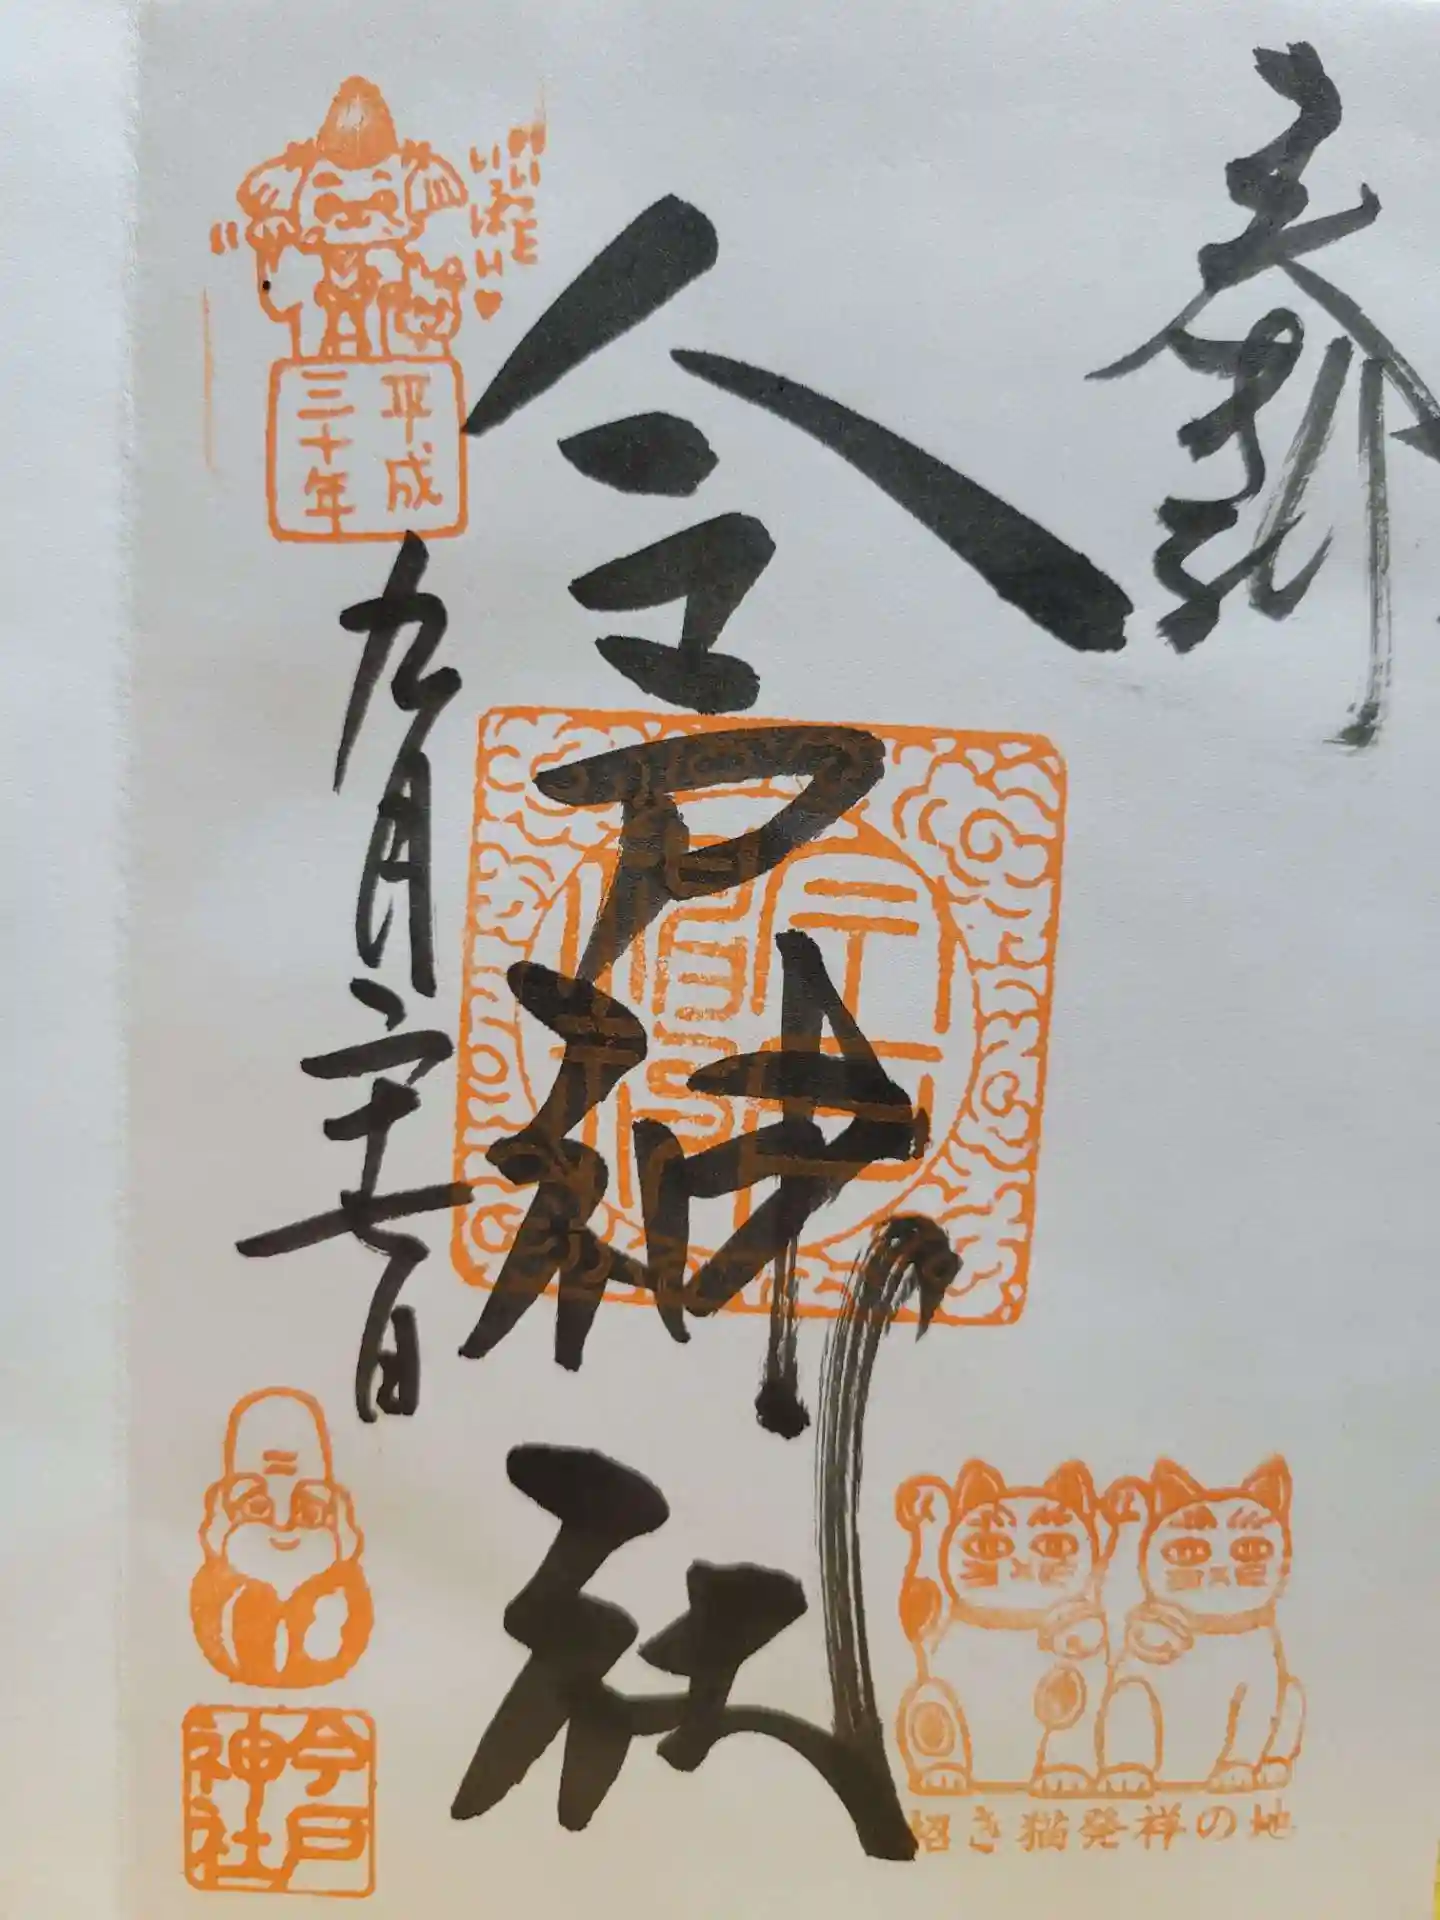 奉拝
今戸神社
平成
三十年
九月二十七日
今戸
神社
招き猫発祥の地